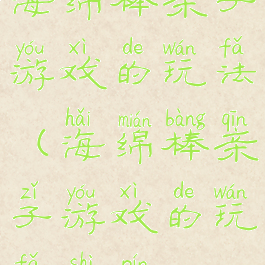 海绵棒亲子
yóu xì de wán fǎ
游戏的玩法
hǎi mián bàng qīn
（海绵棒亲
zǐ yóu xì de wán
子游戏的玩
fǎ shì pín